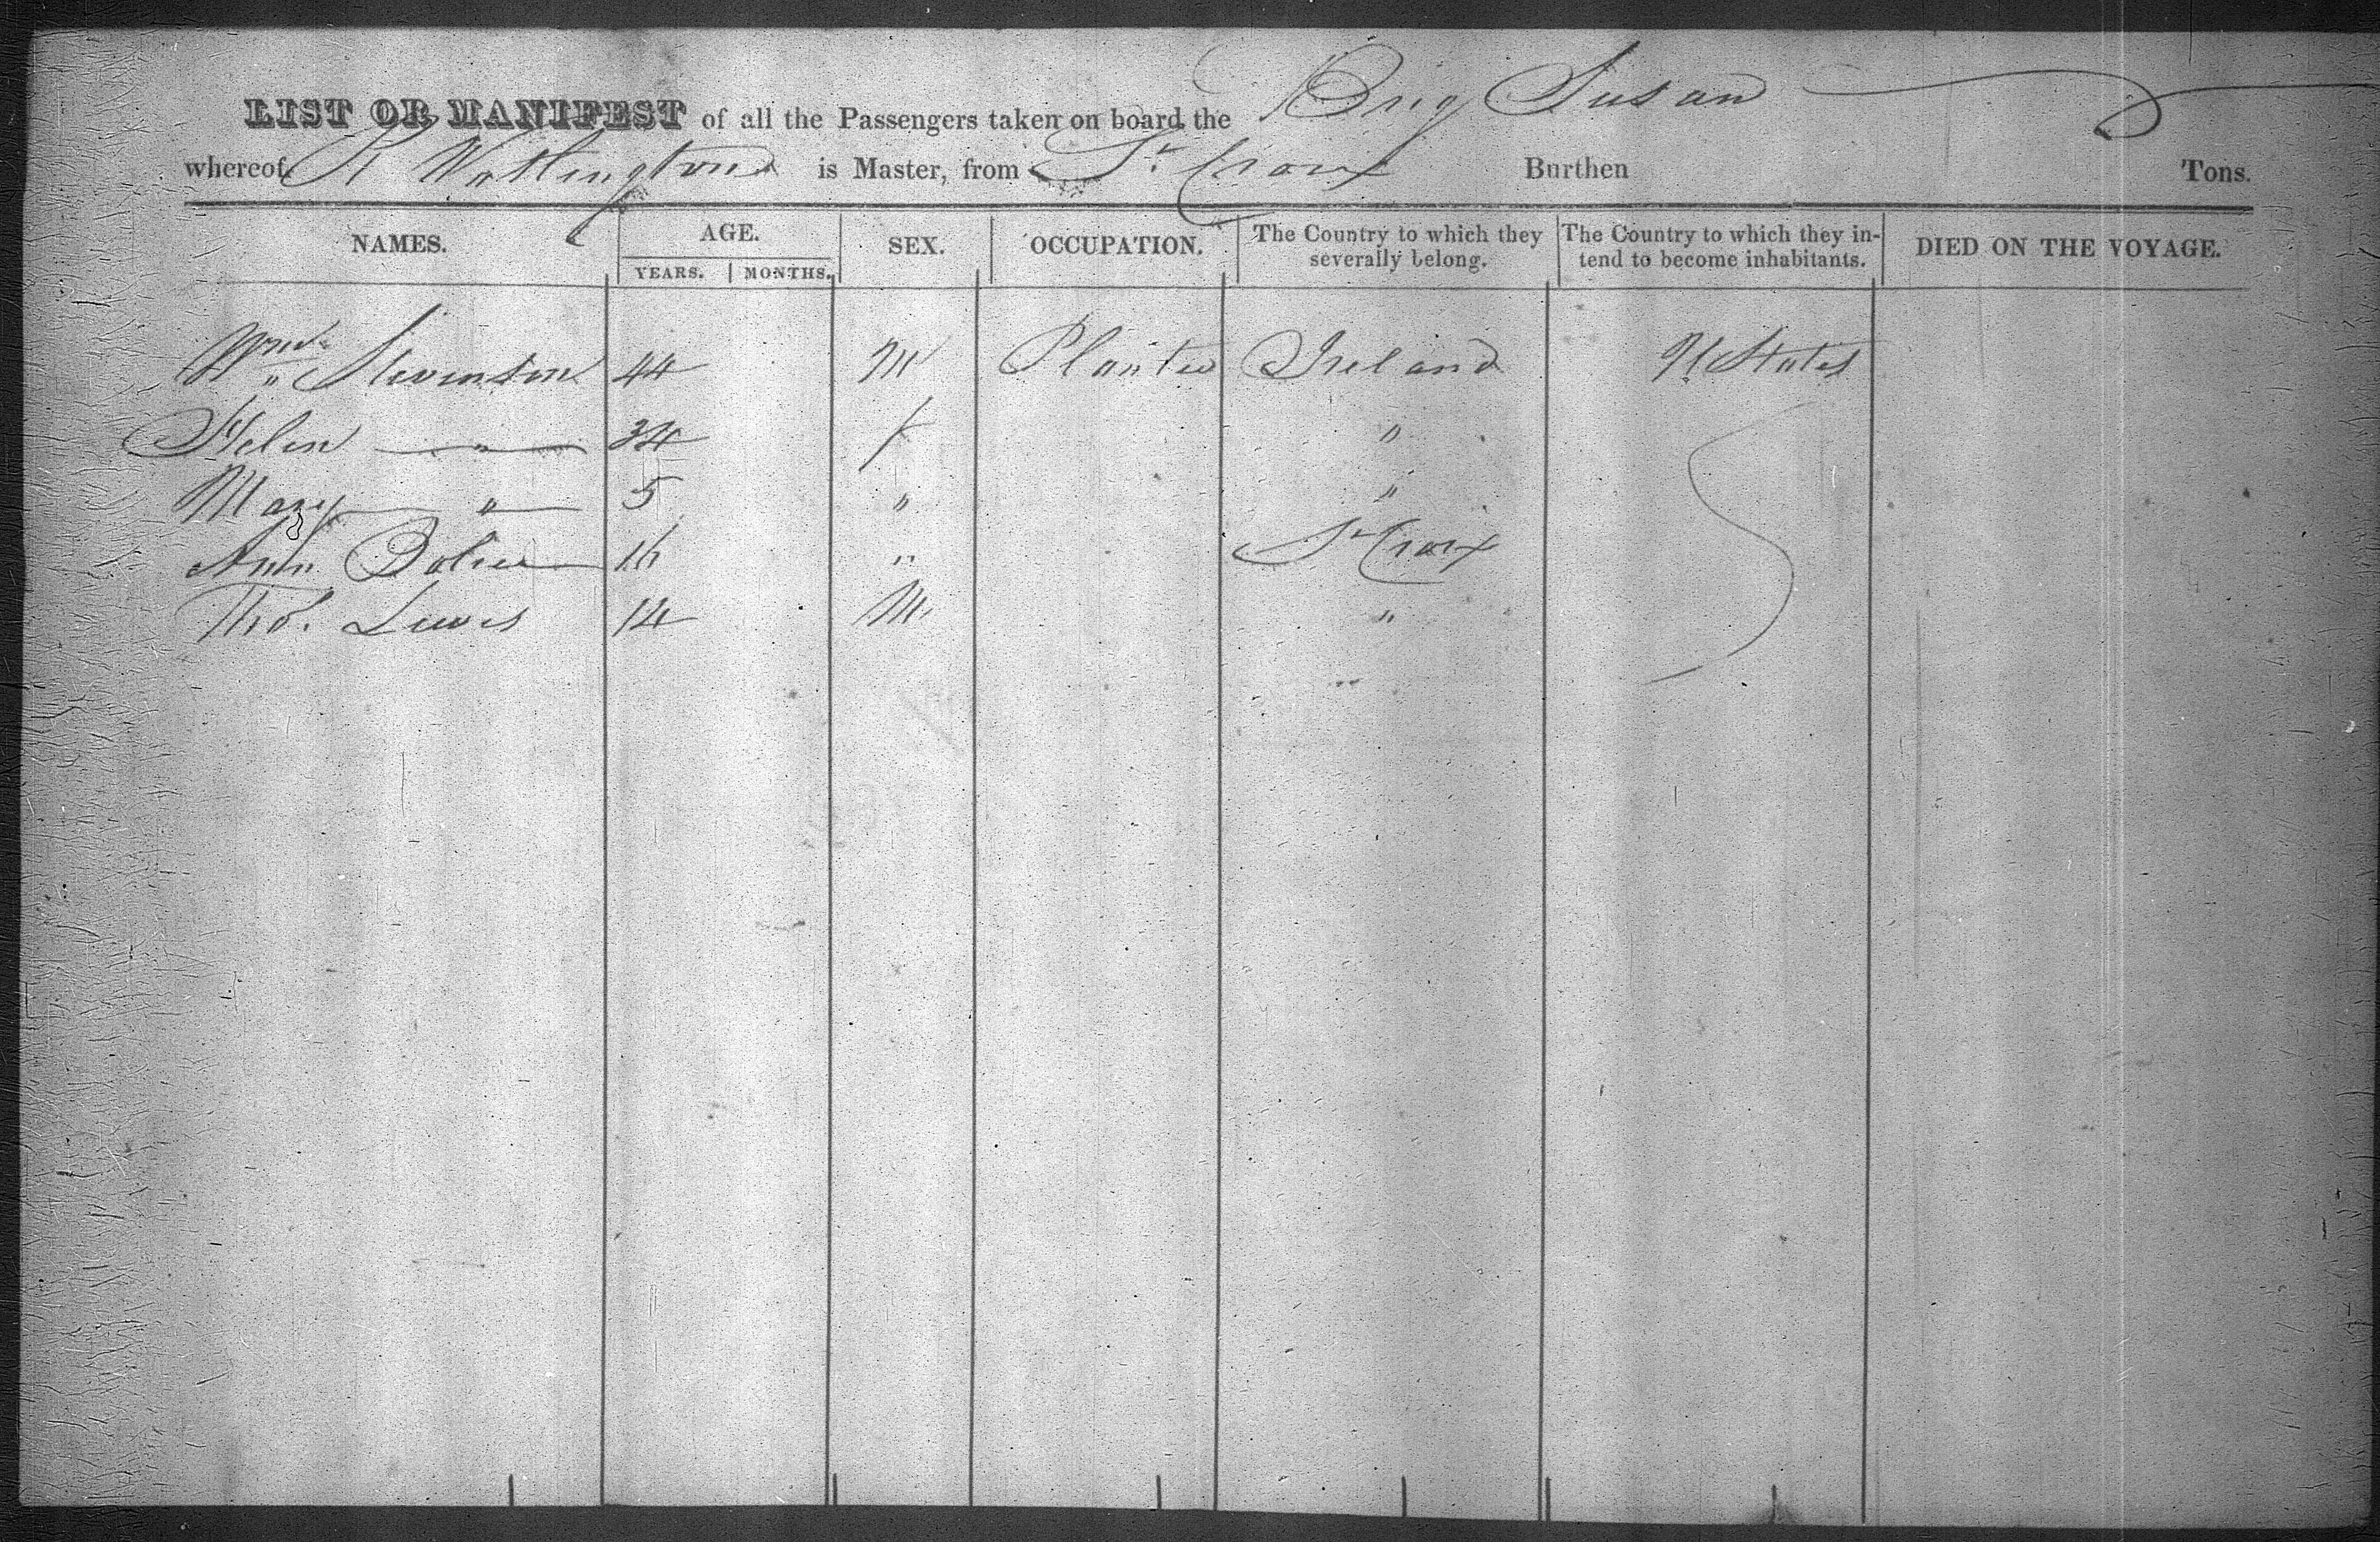 LIST OR MANIFEST of all the Passengers taken on board the Brig Susan
whereof R Watlington is Master, from St. Croix Burthen Tons.
NAMES. AGE. SEX. OCCUPATION. The Country to which they severally belong. The Country to which they intend to become inhabitants. DIED ON THE VOYAGE.
YEARS. MONTHS.
Wm " Stevenson 44 M Planter Ireland U States
Helen — " — 34 f "
Mary — " — 5 " "
Ann 16 " St Croix
Thos. Lewis 14 M "